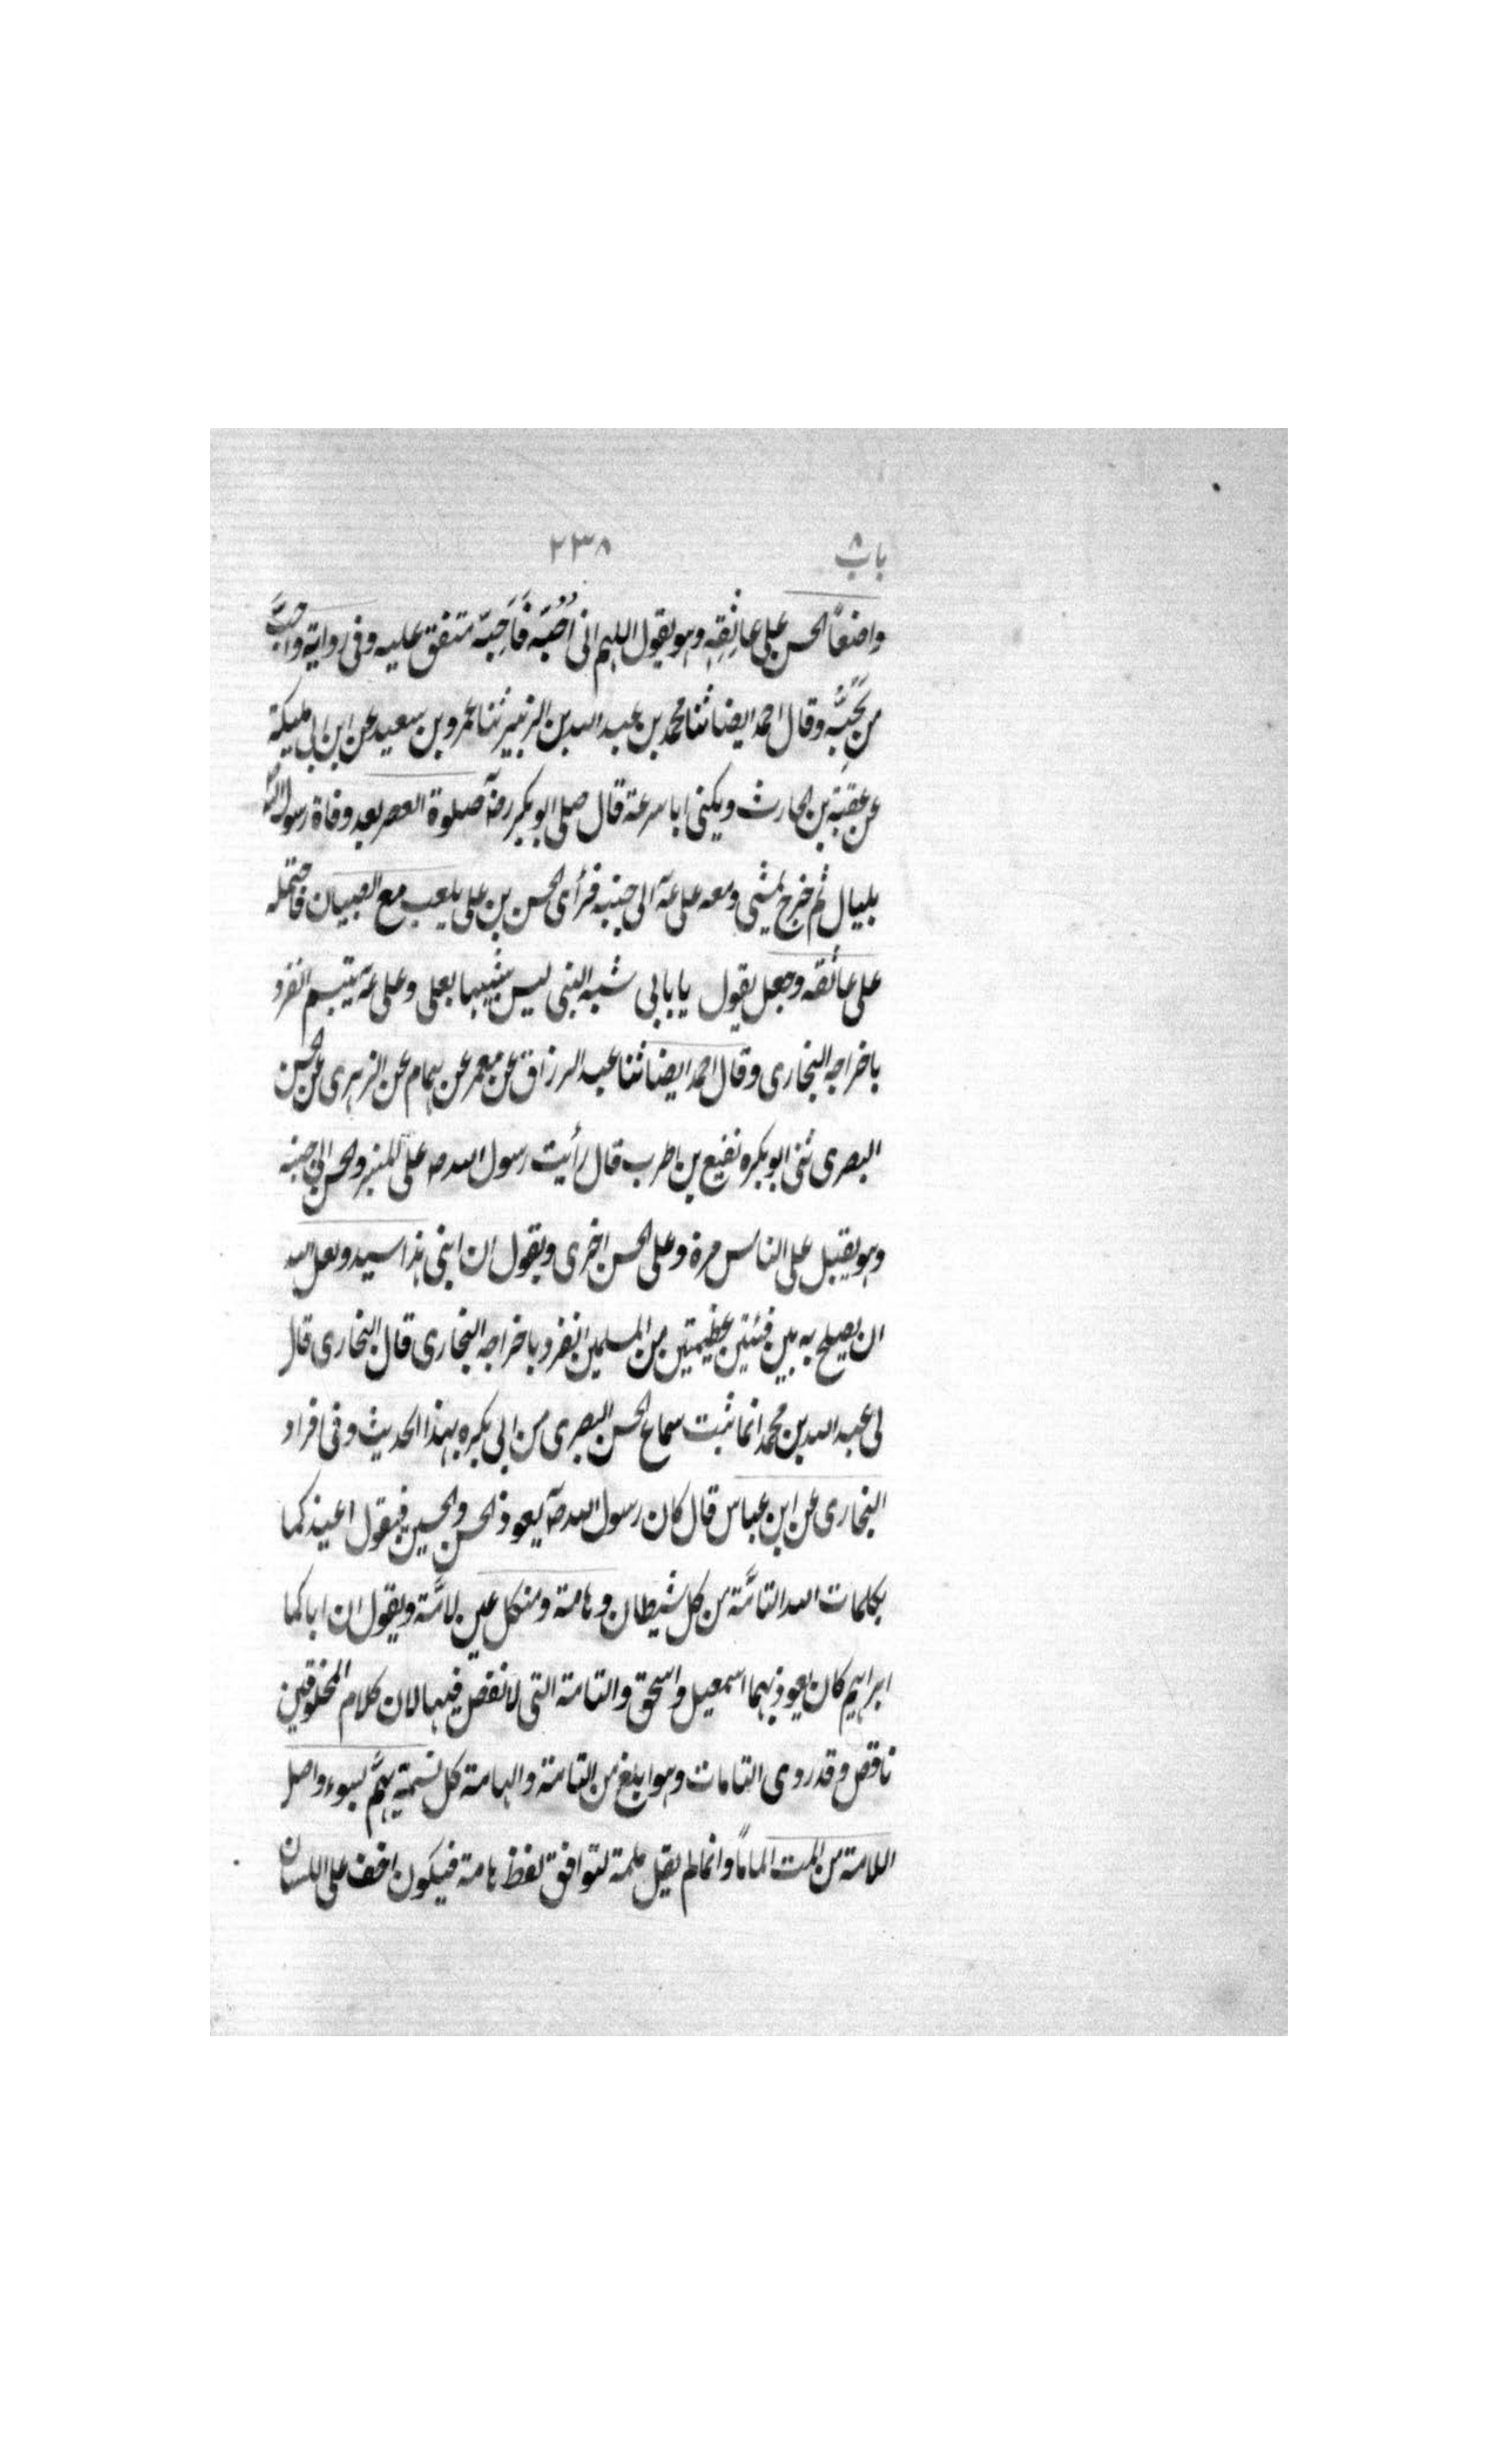 باب ٨ ٢٣٨
واضعاً الحسن على عاتقه وهو يقول اللهم انى اُحُبّه فَاَحِبّه متفق عليه وفى رواية واحبّ
من يحبّه وقال احمد ايضا ثنا محمد بن عبد الله بن الزبير ثنا عمرو بن سعيد عن ابن ابى مليكة
عن عقبة بن الحارث ويكنى ابا سرعة قال صلى ابو بكر رضه صلوة العصر بعد وفاة رسول الله
بليال ثم خرج يمشى ومعه على عه الى جنبه فرأى الحسن بن على يلعب مع الصبيان فاحتمله
على عاتقه وجعل يقول يا بابى شبه النبى ليس شبيها بعلى وعلى عه يتبسم انفرد
باخراجه البخارى وقال احمد ايضا ثنا عبد الرزاق عن معمر عن همام عن الزهرى عن الحسن
البصرى ثنى ابو بكره نفيع بن الحرب قال رأيت رسول الله صه على المنبر والحسن الى جنبه
وهو يقبل على الناس مرة وعلى الحسن اخرى ويقول ان ابنى هذا سيد ولعل الله
ان يصلح به بين فئتين عظيمتين من المسلمين انفرد باخراجه البخارى قال البخارى قال
لى عبد الله بن محمد انما ثبت سماع الحسن البصرى من ابى بكره بهذا الحديث وفى افراد
البخارى عن ابن عباس قال كان رسول الله صه يعوذ الحسن والحسين فيقول اعيذكما
بكلمات الله التامّة من كل شيطان وهامة ومنكل عين لامّة ويقول ان اباكما
ابراهيم كان يعوذ بهما اسمعيل واسحق والتامة التى لا نقص فيها لان كلام المخلوقين
ناقص وقد روى التامات وهو ابلغ من التامة والهامة كل نسمة يهمّ بسوء واصل
اللامة من الممت الماماً وانما لم يقل ملمة لتوافق لفظ هامة فيكون اخف على اللسان